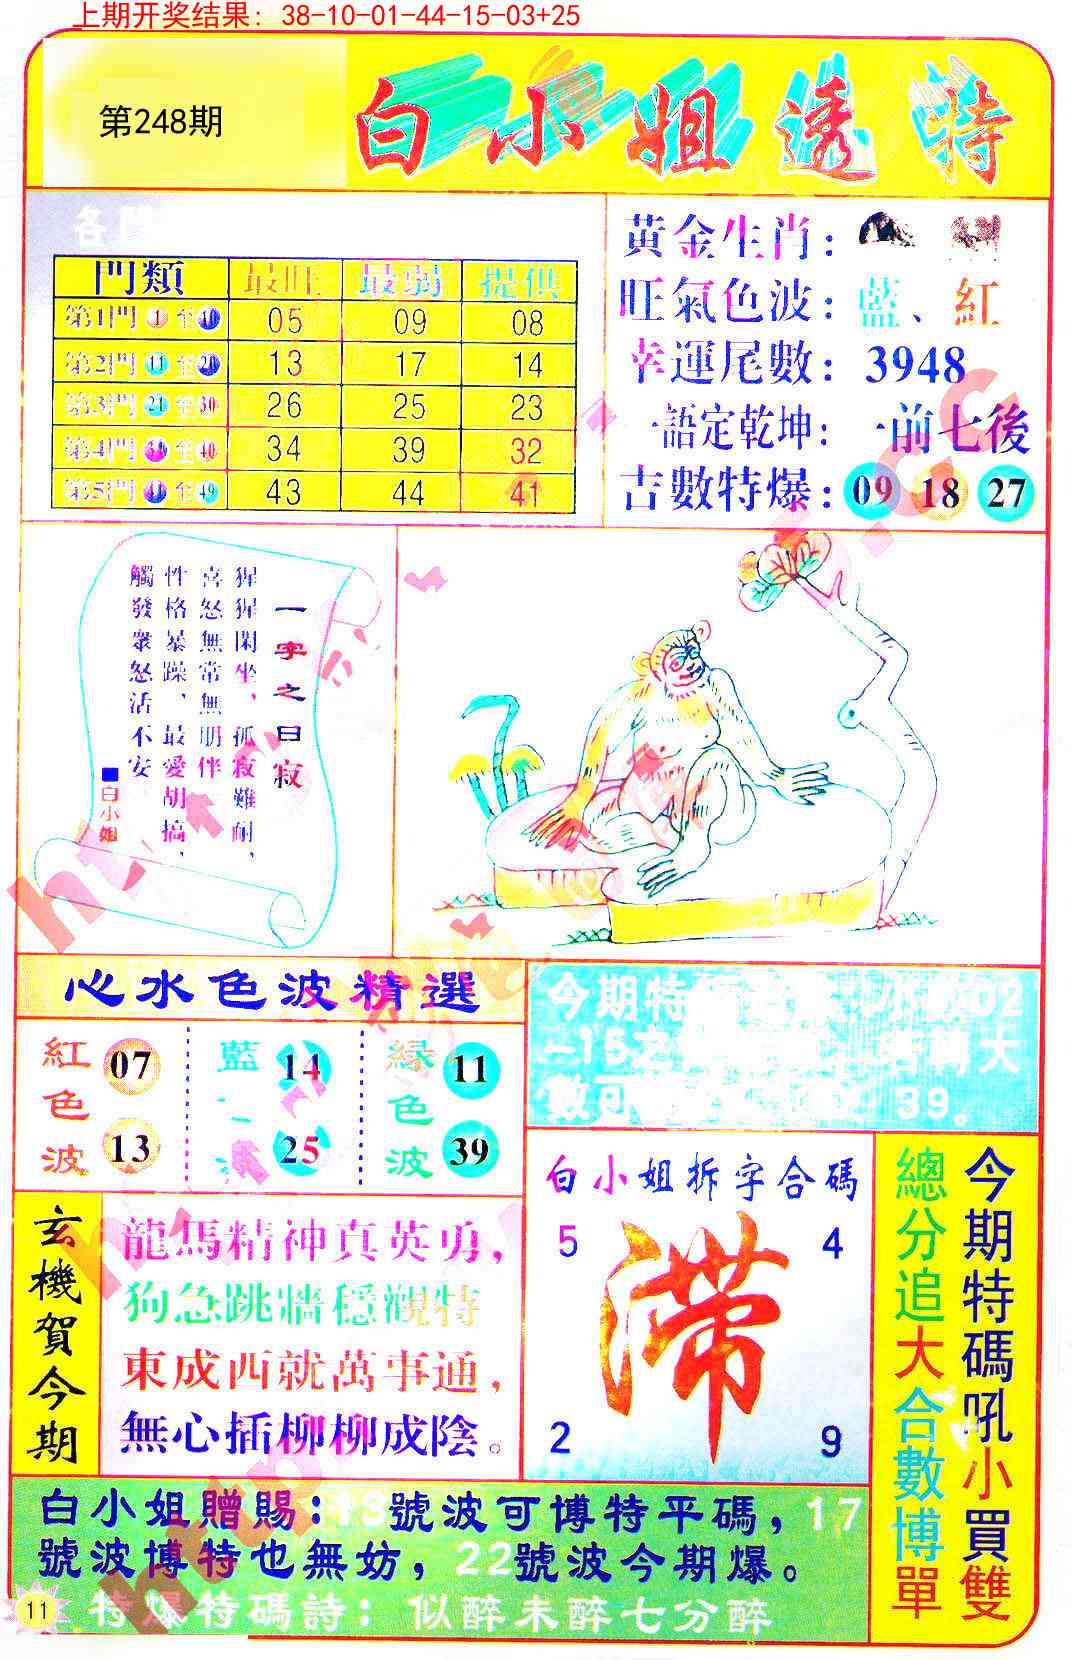 上期开奖结果：38-10-01-44-15-03+25
第248期
白小姐透特
各門
門類 最旺 最弱 提供
第1門 1 至 10 05 09 08
第2門 11 至 20 13 17 14
第3門 21 至 30 26 25 23
第4門 31 至 40 34 39 32
第5門 41 至 49 43 44 41
黃金生肖：
旺氣色波：藍、紅
幸運尾數：3948
一語定乾坤：一前七後
古數特爆：09 18 27
一字之曰寂
猩猩閑坐，孤寂難耐，
喜怒無常無朋伴
性格暴躁，最愛胡搞，
觸發衆怒活不安
■白小姐
心水色波精選
紅色波 07 13
藍 14 25
緑色波 11 39
今期特 02
-15之 大
數可 39。
白小姐拆字合碼
5 4
滞
2 9
今期特碼吼小買雙
總分追大合數博單
玄機賀今期
龍馬精神真英勇，
狗急跳牆穩觀特
東成西就萬事通，
無心插柳柳成陰。
白小姐贈賜：13號波可博特平碼，17
號波博特也無妨，22號波今期爆。
特爆特碼詩：似醉未醉七分醉
11